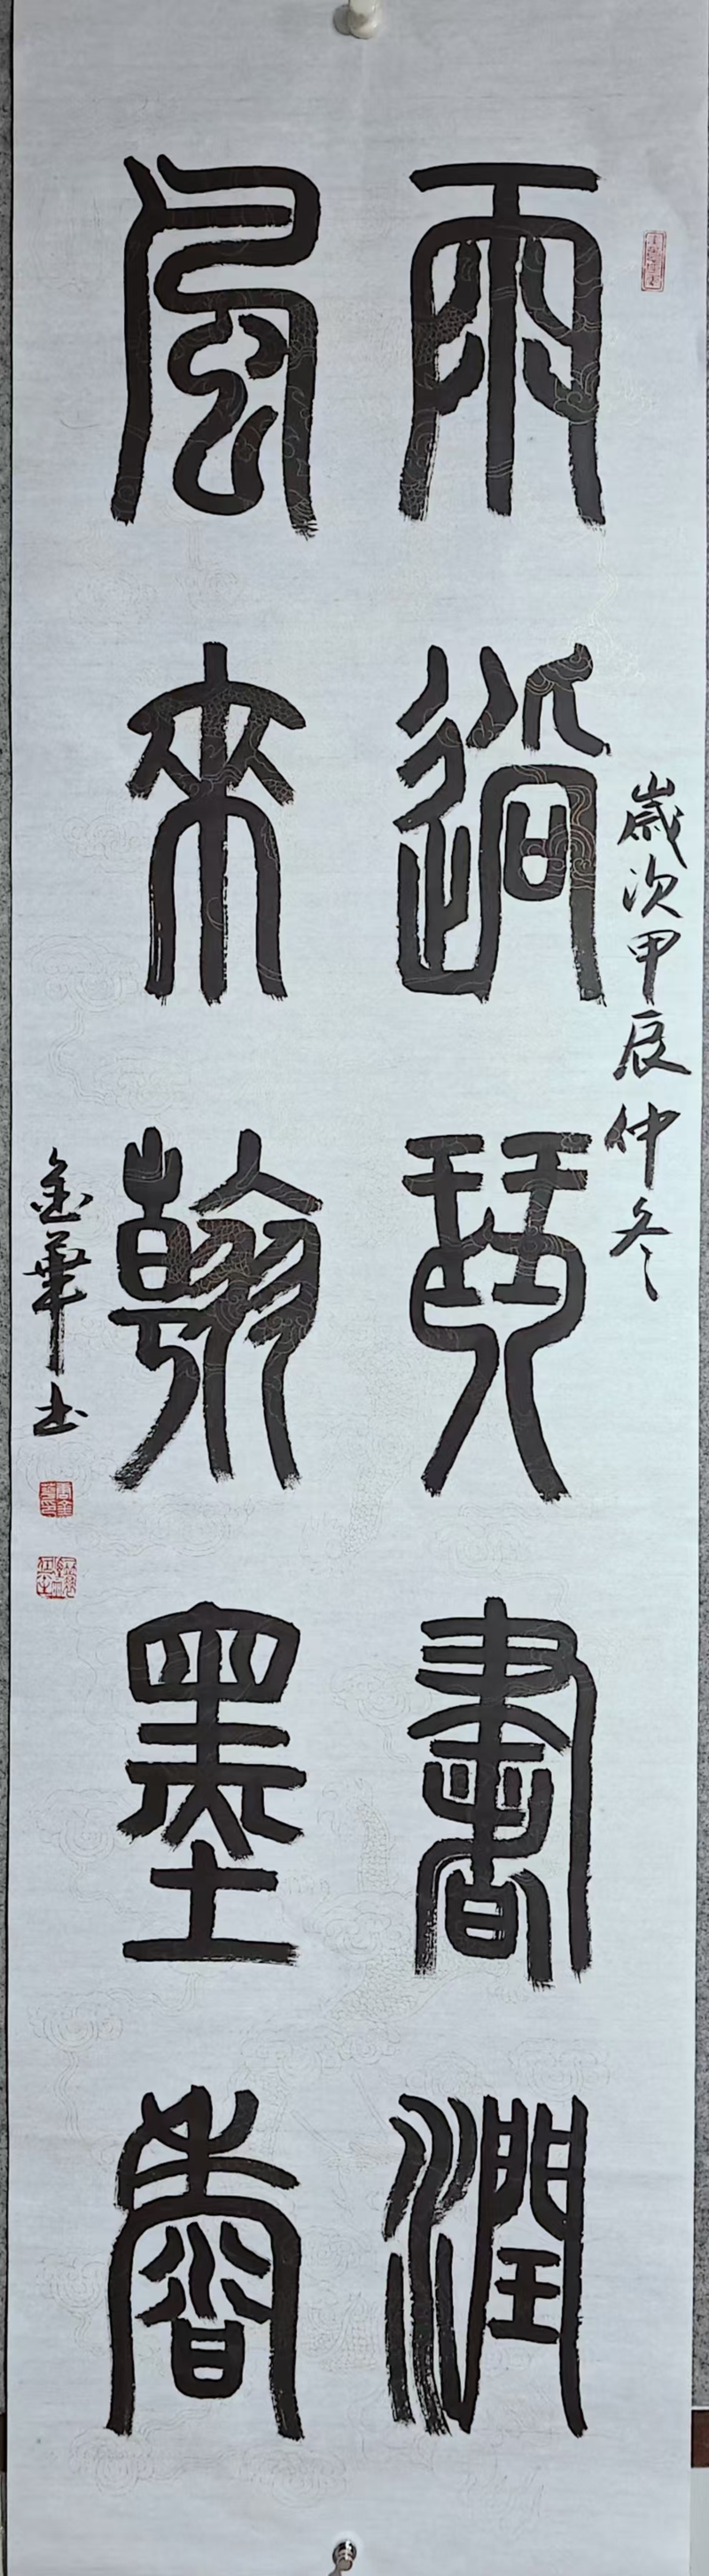 歲次甲辰仲冬
雨過琴書潤
風來翰墨香
金華書